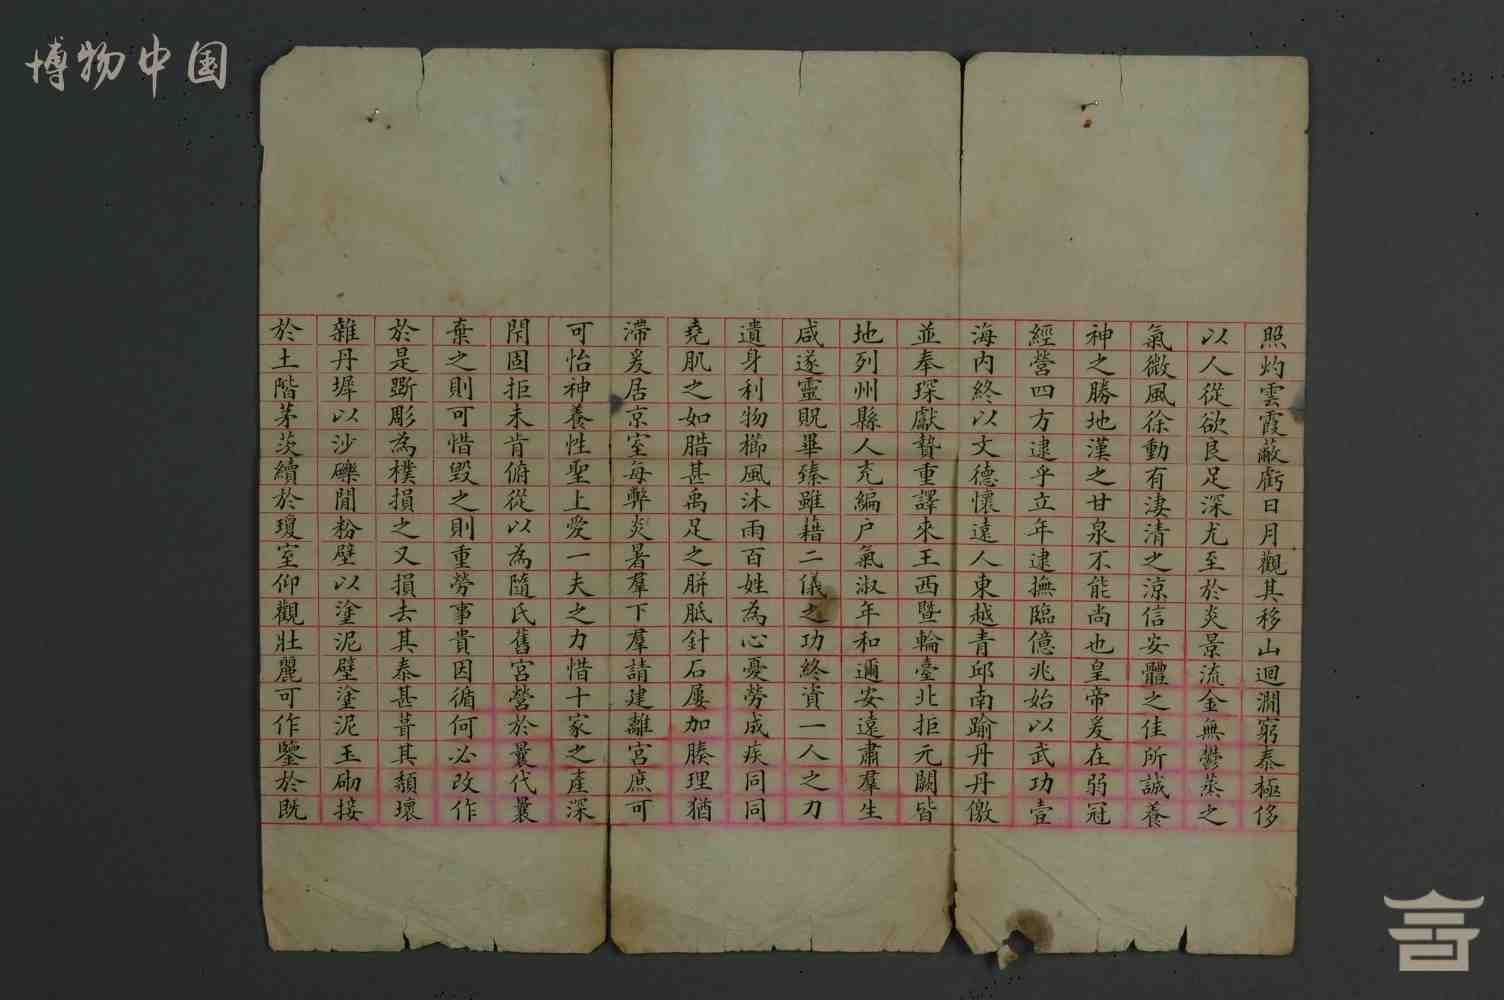 博物中国
照灼雲霞蔽虧日月觀其移山迴澗窮泰極侈
以人從欲良足深尤至於炎景流金無鬱蒸之
氣微風徐動有淒清之涼信安體之佳所誠養
神之勝地漢之甘泉不能尚也皇帝爰在弱冠
經營四方逮乎立年逮撫臨億兆始以武功壹
海內終以文德懷遠人東越青邱南踰丹丹儌
並奉琛獻贄重譯來王西暨輪臺北拒元闕皆
地列州縣人充編户氣淑年和邇安遠肅羣生
咸遂靈貺畢臻雖藉二儀之功終資一人之刀
遺身利物櫛風沐雨百姓為心憂勞成疾同同
堯肌之如腊甚禹足之胼胝針石屢加腠理猶
滯爰居京室每弊炎暑羣下羣請建離宮庶可
可怡神養性聖上愛一夫之力惜十家之產深
閇固拒未肯俯從以為隨氏舊宮營於曩代曩
棄之則可惜毀之則重勞事貴因循何必改作
於是斲彫為樸損之又損去其泰甚葺其頹壞
雜丹墀以沙礫閒粉壁以塗泥壁塗泥玉砌接
於土階茅茨續於瓊室仰觀壯麗可作鑒於既